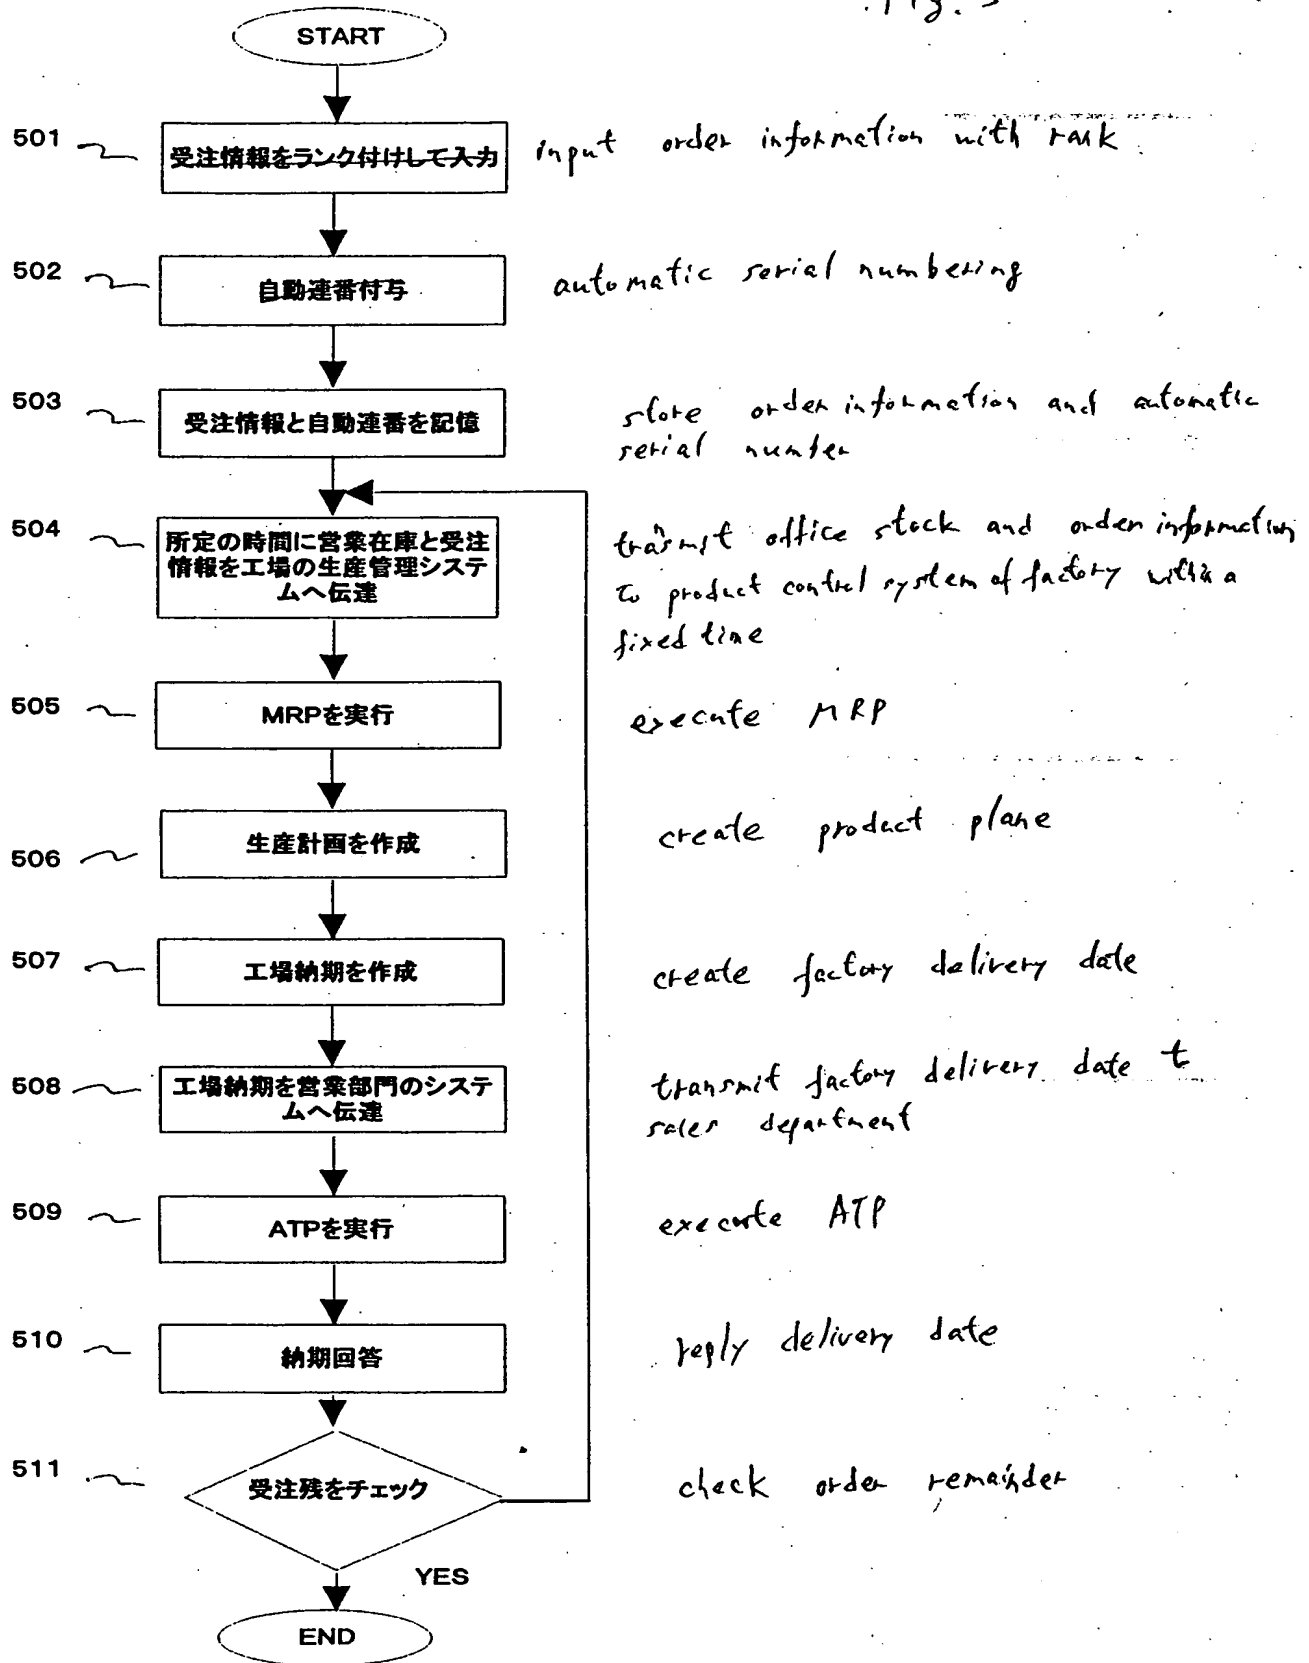 Fig. 5
START
501
受注情報をランク付けして入力
input order information with rank
502
自動連番付与
automatic serial numbering
503
受注情報と自動連番を記憶
store order information and automatic
serial number
504
所定の時間に営業在庫と受注
情報を工場の生産管理システ
ムへ伝達
transmit office stock and order information
to product control system of factory within a
fixed time
505
MRPを実行
execute MRP
506
生産計画を作成
create product plane
507
工場納期を作成
create factory delivery date
508
工場納期を営業部門のシステ
ムへ伝達
transmit factory delivery date t
sales department
509
ATPを実行
execute ATP
510
納期回答
reply delivery date
511
受注残をチェック
check order remainder
YES
END